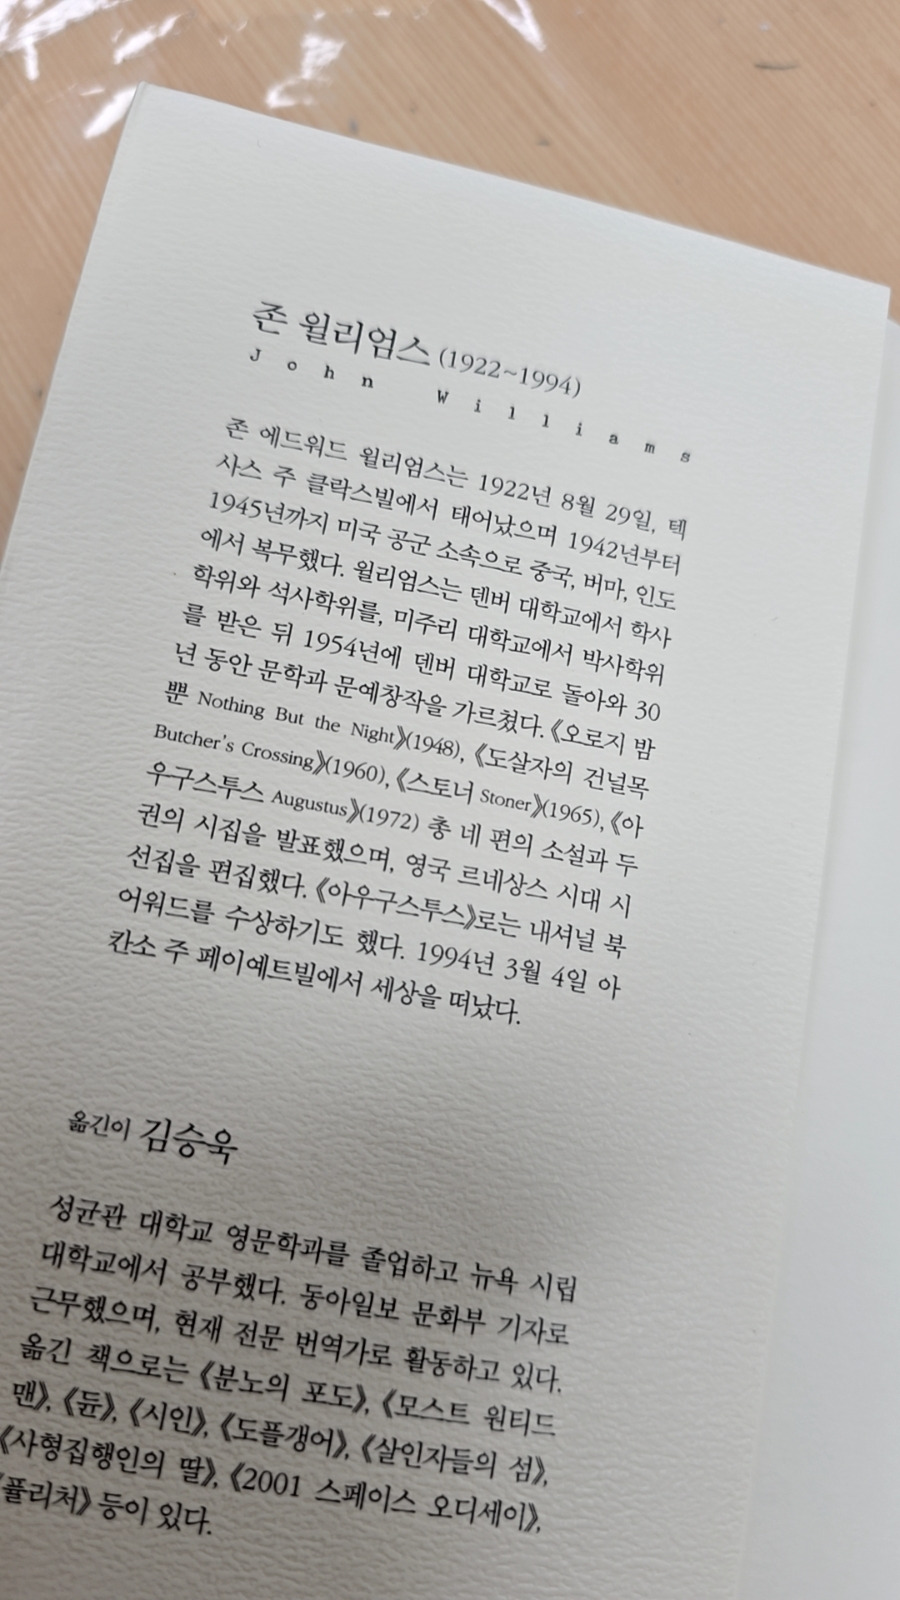 존 윌리엄스 (1922~1994)
John Williams
존 에드워드 윌리엄스는 1922년 8월 29일, 텍
사스 주 클락스빌에서 태어났으며 1942년부터
1945년까지 미국 공군 소속으로 중국, 버마, 인도
에서 복무했다. 윌리엄스는 덴버 대학교에서 학사
학위와 석사학위를, 미주리 대학교에서 박사학위
를 받은 뒤 1954년에 덴버 대학교로 돌아와 30
년 동안 문학과 문예창작을 가르쳤다. 《오로지 밤
뿐 Nothing But the Night》(1948), 《도살자의 건널목
Butcher's Crossing》(1960), 《스토너 Stoner》(1965), 《아
우구스투스 Augustus》(1972) 총 네 편의 소설과 두
권의 시집을 발표했으며, 영국 르네상스 시대 시
선집을 편집했다. 《아우구스투스》로는 내셔널 북
어워드를 수상하기도 했다. 1994년 3월 4일 아
칸소 주 페이예트빌에서 세상을 떠났다.
옮긴이 김승욱
성균관 대학교 영문학과를 졸업하고 뉴욕 시립
대학교에서 공부했다. 동아일보 문화부 기자로
근무했으며, 현재 전문 번역가로 활동하고 있다.
옮긴 책으로는 《분노의 포도》, 《모스트 원티드
맨》, 《듄》, 《시인》, 《도플갱어》, 《살인자들의 섬》,
《사형집행인의 딸》, 《2001 스페이스 오디세이》,
《퓰리처》 등이 있다.